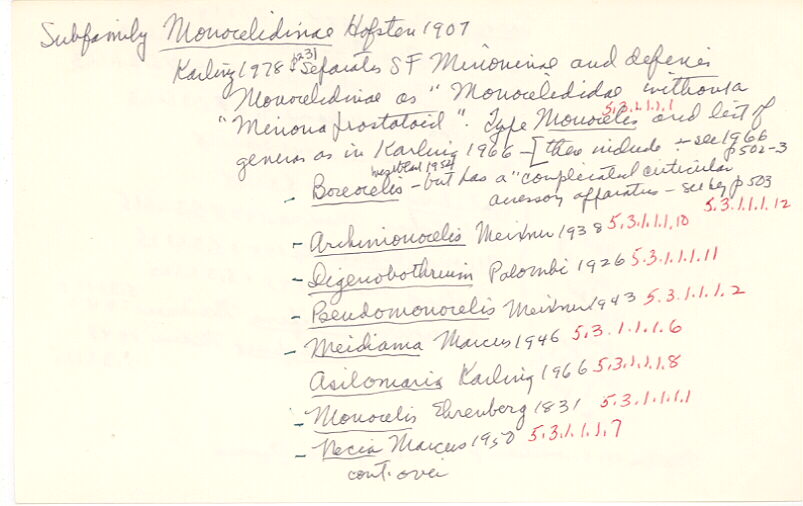 Subfamily Monocelidinae Hofsten 1907
Karling 1978 p231 Separates SF Minoninae and defines
Monocelidinae as "Monocelididae without a
"Minona prostatoid". Type Monocelis 5.3.1.1.1 and list of
genera as in Karling 1966 - [thes include :- see 1966 p502-3
- Boreocelis Westblad 1952 - but has a "complicated cuticular
accessory apparatus - see key p 503
5.3.1.1.1.12
- Archimonocelis Meixner 1938 5.3.1.1.1.10
- Digenobothrium Palombi 1926 5.3.1.1.1.11
- Pseudomonocelis Meixner 1943 5.3.1.1.1.2
- Meidiama Marcus 1946 5.3.1.1.1.6
Asilomaria Karling 1966 5.3.1.1.1.8
- Monocelis Ehrenberg 1831 5.3.1.1.1.1
- Necia Marcus 1950 5.3.1.1.1.7
cont. over